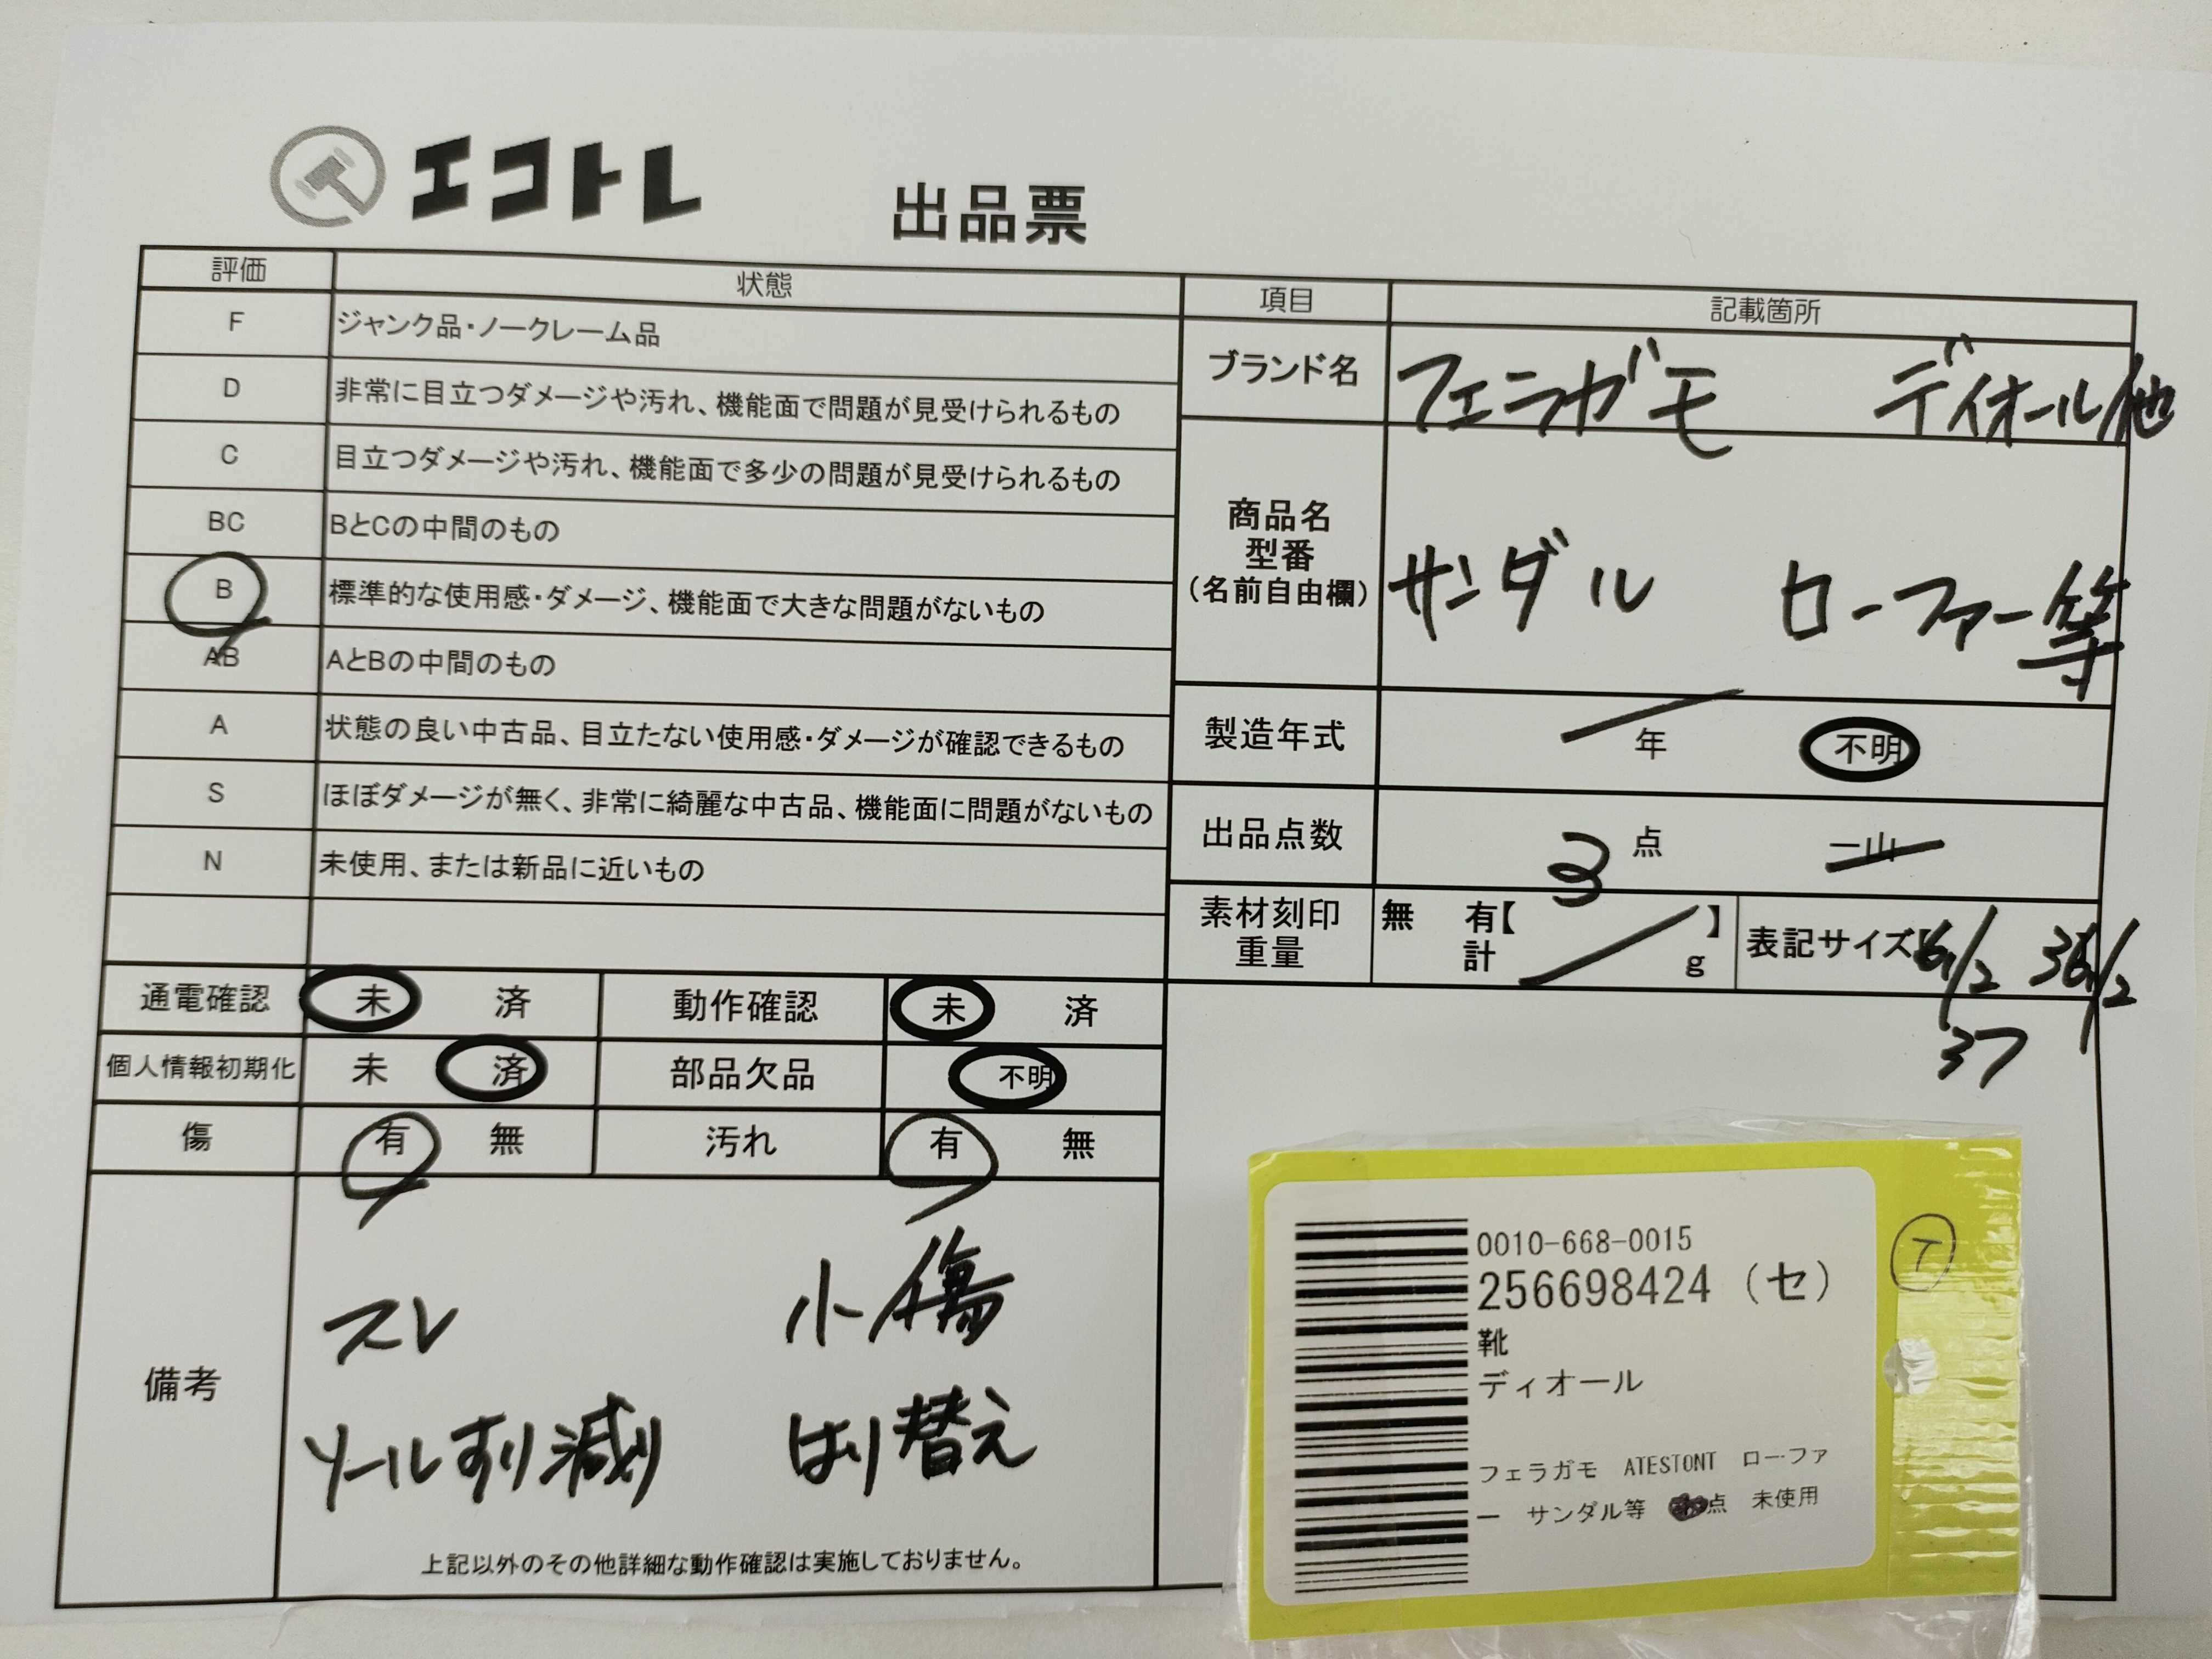 エコトレ
出品票
評価 状態
F ジャンク品・ノークレーム品
D 非常に目立つダメージや汚れ、機能面で問題が見受けられるもの
C 目立つダメージや汚れ、機能面で多少の問題が見受けられるもの
BC BとCの中間のもの
B 標準的な使用感・ダメージ、機能面で大きな問題がないもの
AB AとBの中間のもの
A 状態の良い中古品、目立たない使用感・ダメージが確認できるもの
S ほぼダメージが無く、非常に綺麗な中古品、機能面に問題がないもの
N 未使用、または新品に近いもの
項目 記載箇所
ブランド名 フェラガモ ディオール他
商品名
型番
(名前自由欄)
サンダル ローファー等
製造年式 年 不明
出品点数 3 点 一山
素材刻印 無 有【 】
重量 計 g
表記サイズ 6 1/2 36 1/2
37
通電確認 未 済 動作確認 未 済
個人情報初期化 未 済 部品欠品 不明
傷 有 無 汚れ 有 無
備考
スレ 小傷
ソールすり減り はり替え
上記以外のその他詳細な動作確認は実施しておりません。
0010-668-0015
256698424 (セ)
T
靴
ディオール
フェラガモ ATESTONT ローファ
ー サンダル等 点 未使用